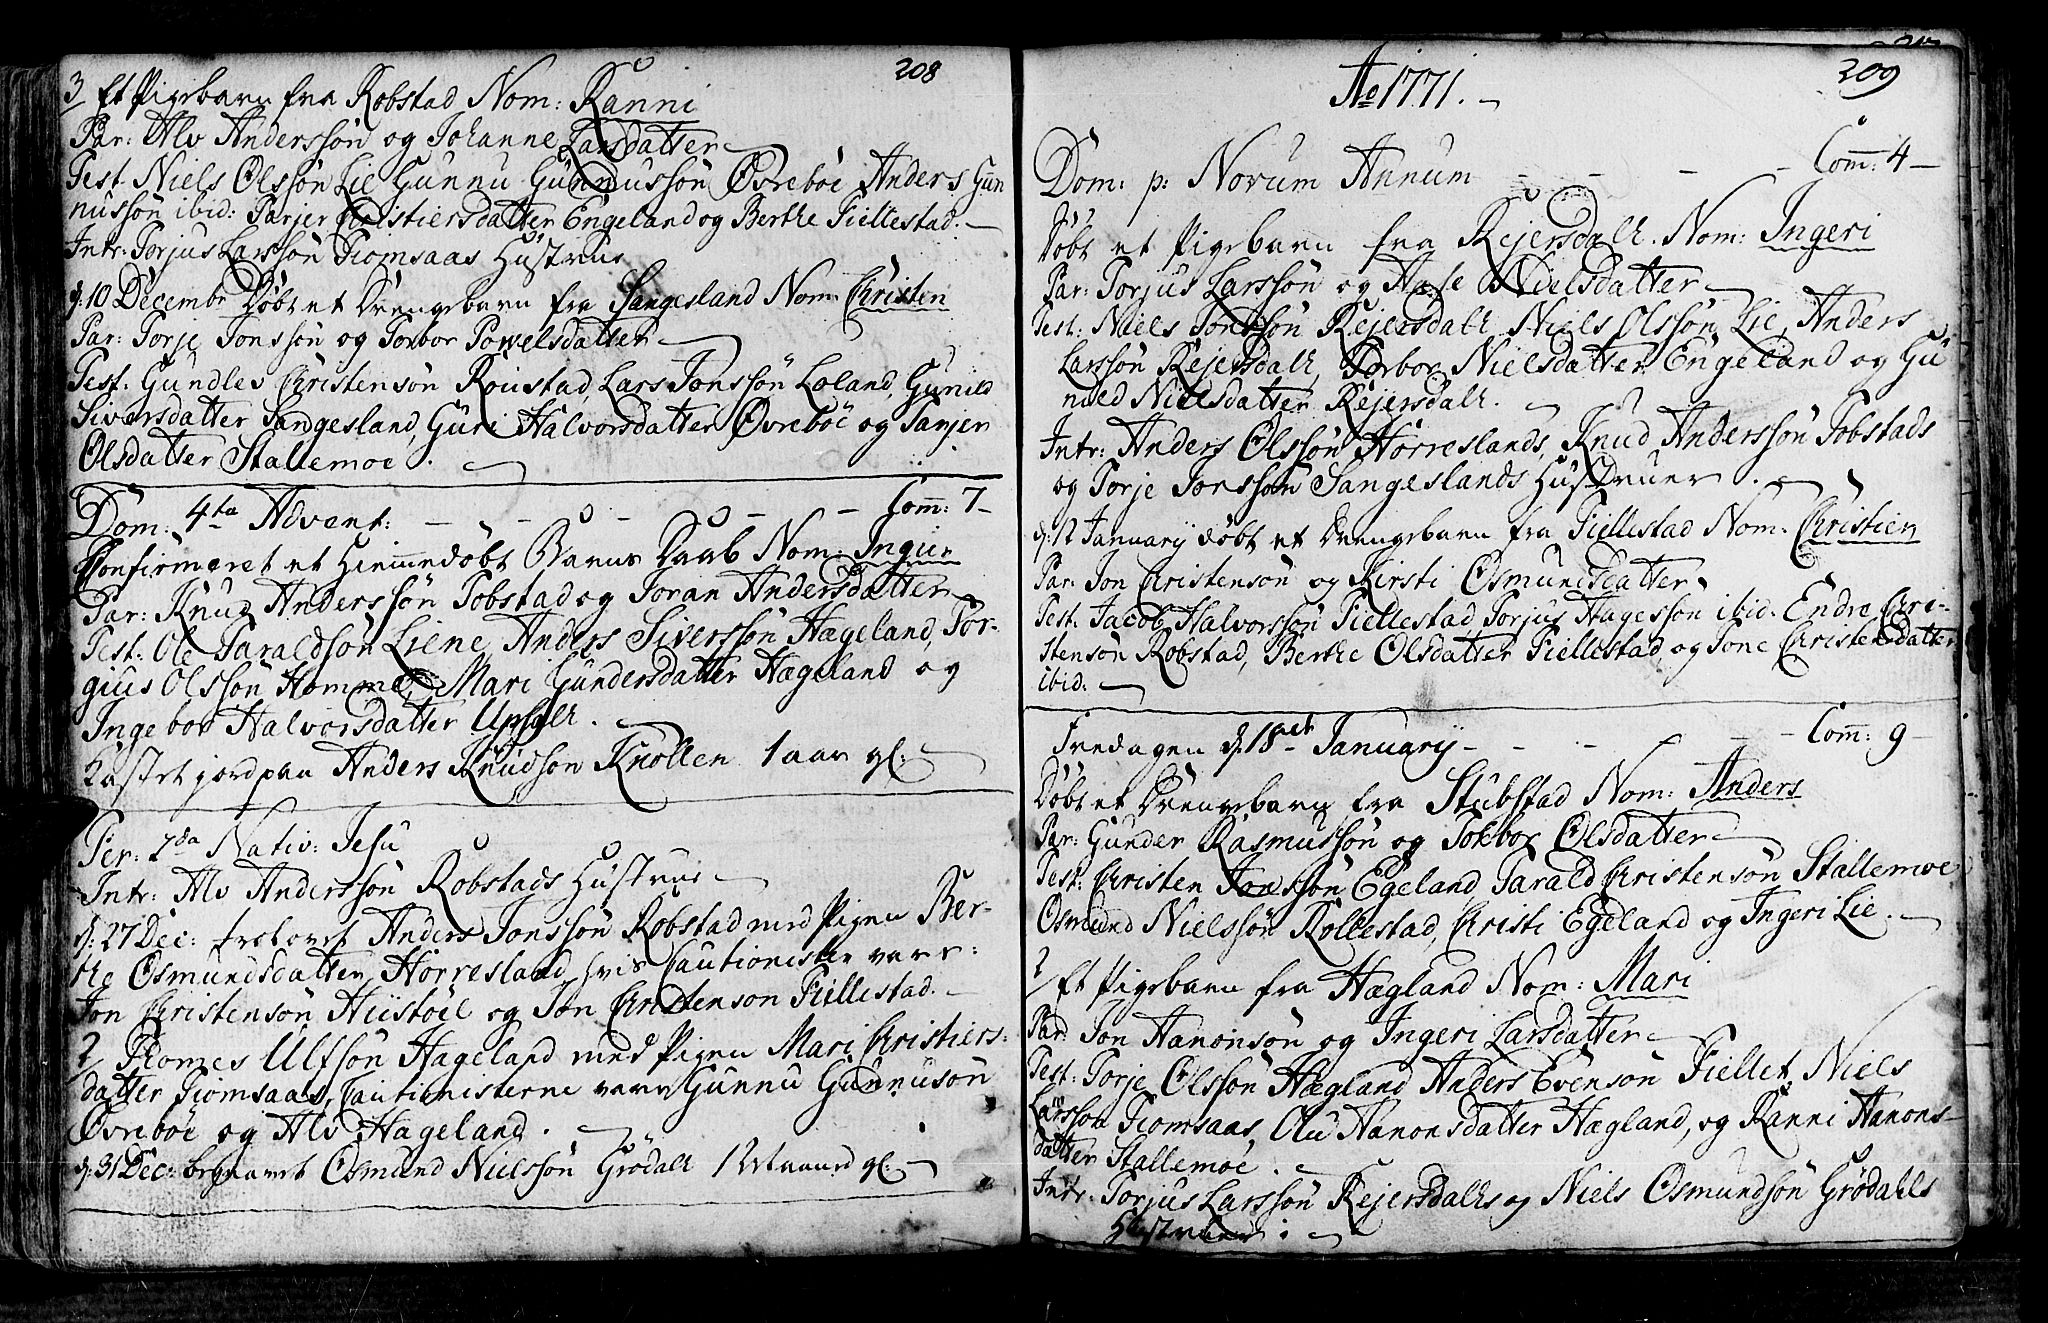 208
3/ Et Pigebarn fra Robstad Nom: Ranni
Par: Alv Anderssøn og Johanne Larsdatter
Test. Niels Olssøn Lie Gunnu Gunnussøn Øvrebøe Anders Gun
nussøn ibid: Tarjer Christiersdatter Engeland og Berthe Fiellestad.
Intr: Torjus Larssøn Fiomsaas Hustrue
d: 10 Decembr Døbt et Drengebarn fra Sangesland Nom: Christen
Par: Torje Jonssøn og Torbor Powelsdatter
Test: Gundlev Christensøn Roiistad, Lars Jonssøn Løland, Gunild
Siversdatter Sangesland, Guri Halvorsdatter Øvrebøe og Tarjer
Olsdatter Stallemoe.
Dom: 4ta Advent: Com: 7
Confirmeret et hiemmedøbt Barns Daab Nom: Ingier
Par: Knud Anderssøn Tobstad og Joran Andersdatter
Test: Ole Taraldsøn Liene, Anders Siverssøn Hægeland, Tor-
giuis Olssøn Homme, Mari Gundersdatter Hægeland og
Ingebor Halvorsdatter Upsahl.
Kastet jord paa Anders Knudsøn Knollen 1 aar gl:
Fer: 2da Nativ: Jesu
Intr: Alv Anderssøn Robstads Hustrue
d: 27 Dec: trolovet Anders Jonssøn Robstad med Pigen Ber-
the Osmundsdatter Hørresland, hvis Cautionister vare:
Jon Christensøn Hiistøel og Jon Christenson Fiellestad.
2/ Thomes Ulfsøn Hageland med Pigen Mari Christiers:
datter Fiomsaas, Cautionisterne vare Gunnu Gunnusøn
Øvrebøe og Alv Hageland.
d: 31 Dec: begravet Osmund Nielssøn Grødahl gl:
209
Ao 1771.
Dom: p: Novum Annum Com: 4
Døbt et Pigebarn fra Rejersdalh. Nom: Ingeri
Par: Torjus Larssøn og Aase Nielsdatter
Test: Niels Jonssøn Rejersdalh, Niels Olssøn Lie, Anders
Larssøn Rejersdalh, Torbor Nielsdatter Engeland og Gu
nild Nielsdatter Rejersdalh.
Intr: Anders Olssøn Hørreslands, Knud Anderssøn Tobstads
og Torje Jonssøn Sangeslands Hustruer.
d: January døbt et Drengebarn fra Fiellestad Nom: Christien
Par: Jon Christensøn og Kirsti Osmundsdatter
Test. Jacob Halvorssøn Fiellestad Torjus Hagessøn ibid. Endre Chri-
stensøn Robstad, Berthe Olsdatter Fiellestad og Tone Christensdatter
ibid:
Fredagen d: 18de January Com: 9
Døbt et Drengebarn fra Stubstad Nom: Anders
Par: Gunder Rasmussøn og Tokbor Olsdatter
Test: Christen Jonssøn Egeland, Tarald Christensøn Stallemoe
Osmund Nielssøn Rollestad, Christi Egeland og Ingeri Lie.
2/ Et Pigebarn fra Hægland Nom: Mari
Par: Jon Hanonsøn og Ingeri Larsdatter
Test: Torje Olssøn Hægland Anders Evensøn Fiellet, Niels
Larssøn Fiomsaas, Olu Hanonsdatter Hægland, og Ranni Hanons-
datter Stallemoe.
Intr: Torjus Larssøn Rejersdalhs og Niels Osmundsøn Grødahls
Hustruer.